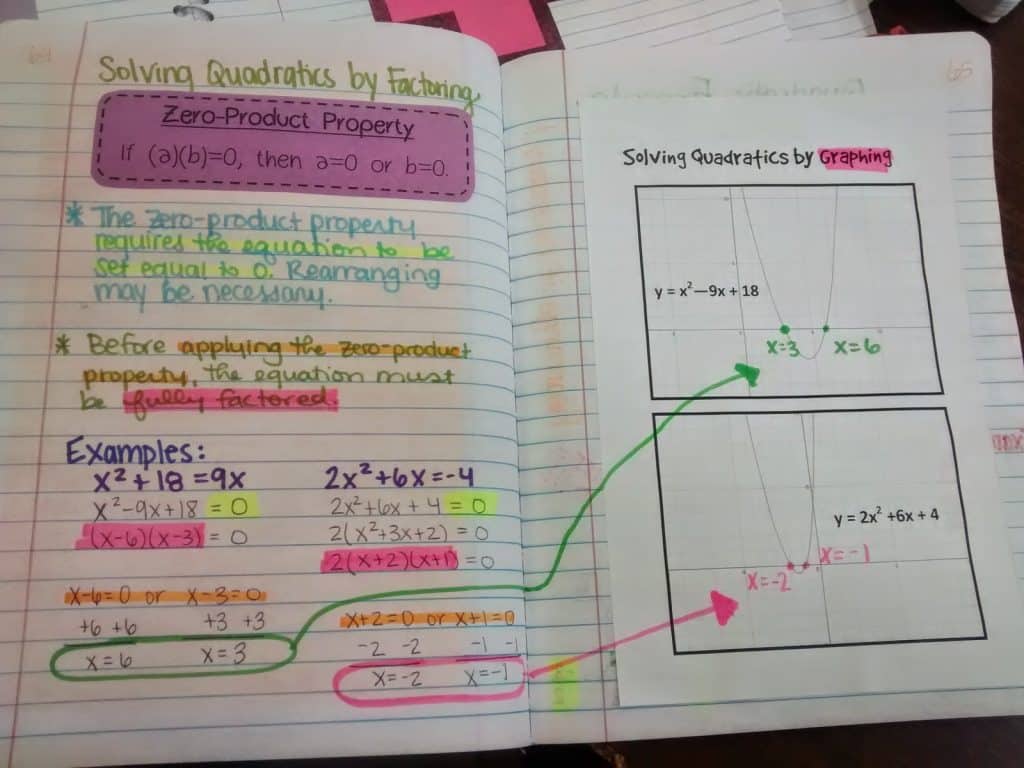 Solving Quadratics by Factoring
Zero-Product Property
If (a)(b)=0, then a=0 or b=0.
* The zero-product property
requires the equation to be
set equal to 0. Rearranging
may be necessary.
* Before applying the zero-product
property, the equation must
be fully factored.
Examples:
x²+18=9x
x²-9x+18 = 0
(x-6)(x-3) = 0
x-6=0 or x-3=0
+6 +6 +3 +3
x=6 x=3
2x²+6x=-4
2x²+6x+4=0
2(x²+3x+2)=0
2(x+2)(x+1)=0
x+2=0 or x+1=0
-2 -2 -1 -1
x=-2 x=-1
65
Solving Quadratics by Graphing
y = x²—9x + 18
x=3 x=6
y = 2x² +6x + 4
x=-1
x=-2